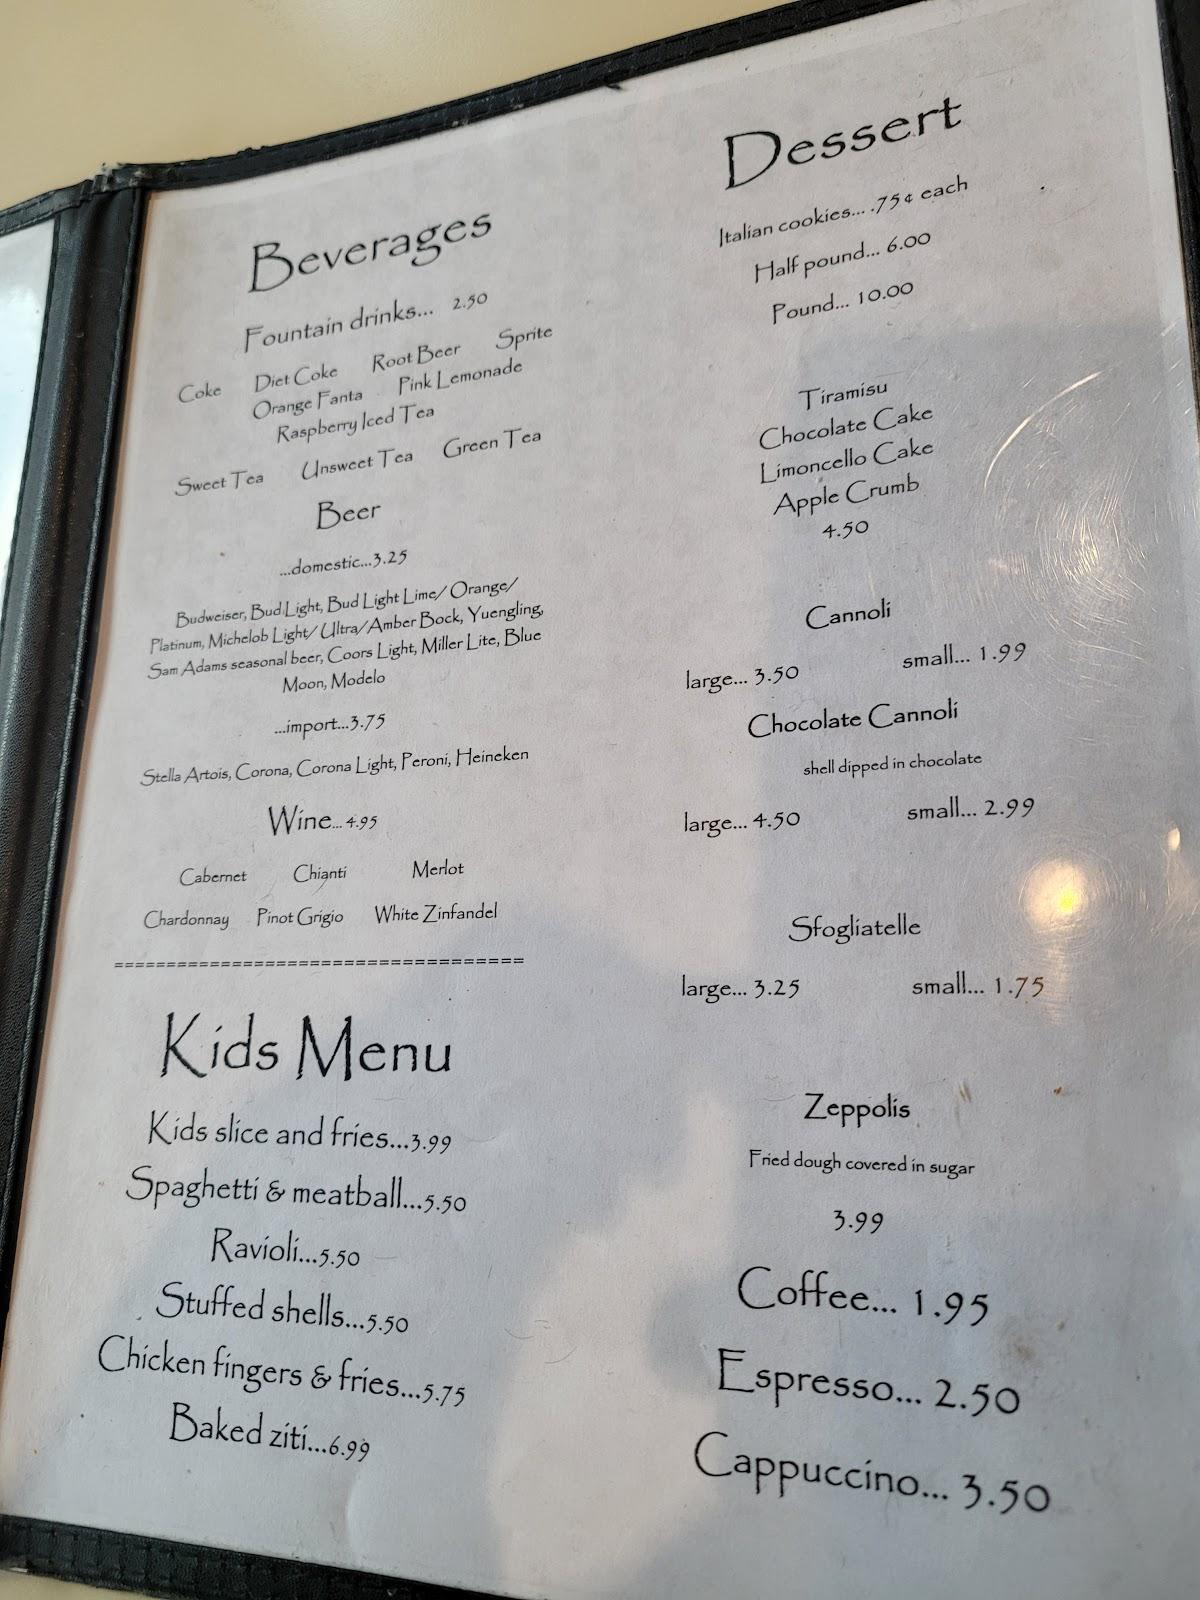 Beverages
Fountain drinks... 2.50
Coke Diet Coke Root Beer Sprite
Orange Fanta Pink Lemonade
Raspberry Iced Tea
Sweet Tea Unsweet Tea Green Tea
Beer
...domestic...3.25
Budweiser, Bud Light, Bud Light Lime/ Orange/
Platinum, Michelob Light/ Ultra/Amber Bock, Yuengling,
Sam Adams seasonal beer, Coors Light, Miller Lite, Blue
Moon, Modelo
...import...3.75
Stella Artois, Corona, Corona Light, Peroni, Heineken
Wine... 4.95
Cabernet Chianti Merlot
Chardonnay Pinot Grigio White Zinfandel
===================================
Kids Menu
Kids slice and fries...3.99
Spaghetti & meatball...5.50
Ravioli...5.50
Stuffed shells...5.50
Chicken fingers & fries...5.75
Baked ziti...6.99
Dessert
Italian cookies... .75¢ each
Half pound... 6.00
Pound... 10.00
Tiramisu
Chocolate Cake
Limoncello Cake
Apple Crumb
4.50
Cannoli
large... 3.50 small... 1.99
Chocolate Cannoli
shell dipped in chocolate
large... 4.50 small... 2.99
Sfogliatelle
large... 3.25 small... 1.75
Zeppolis
Fried dough covered in sugar
3.99
Coffee... 1.95
Espresso... 2.50
Cappuccino... 3.50